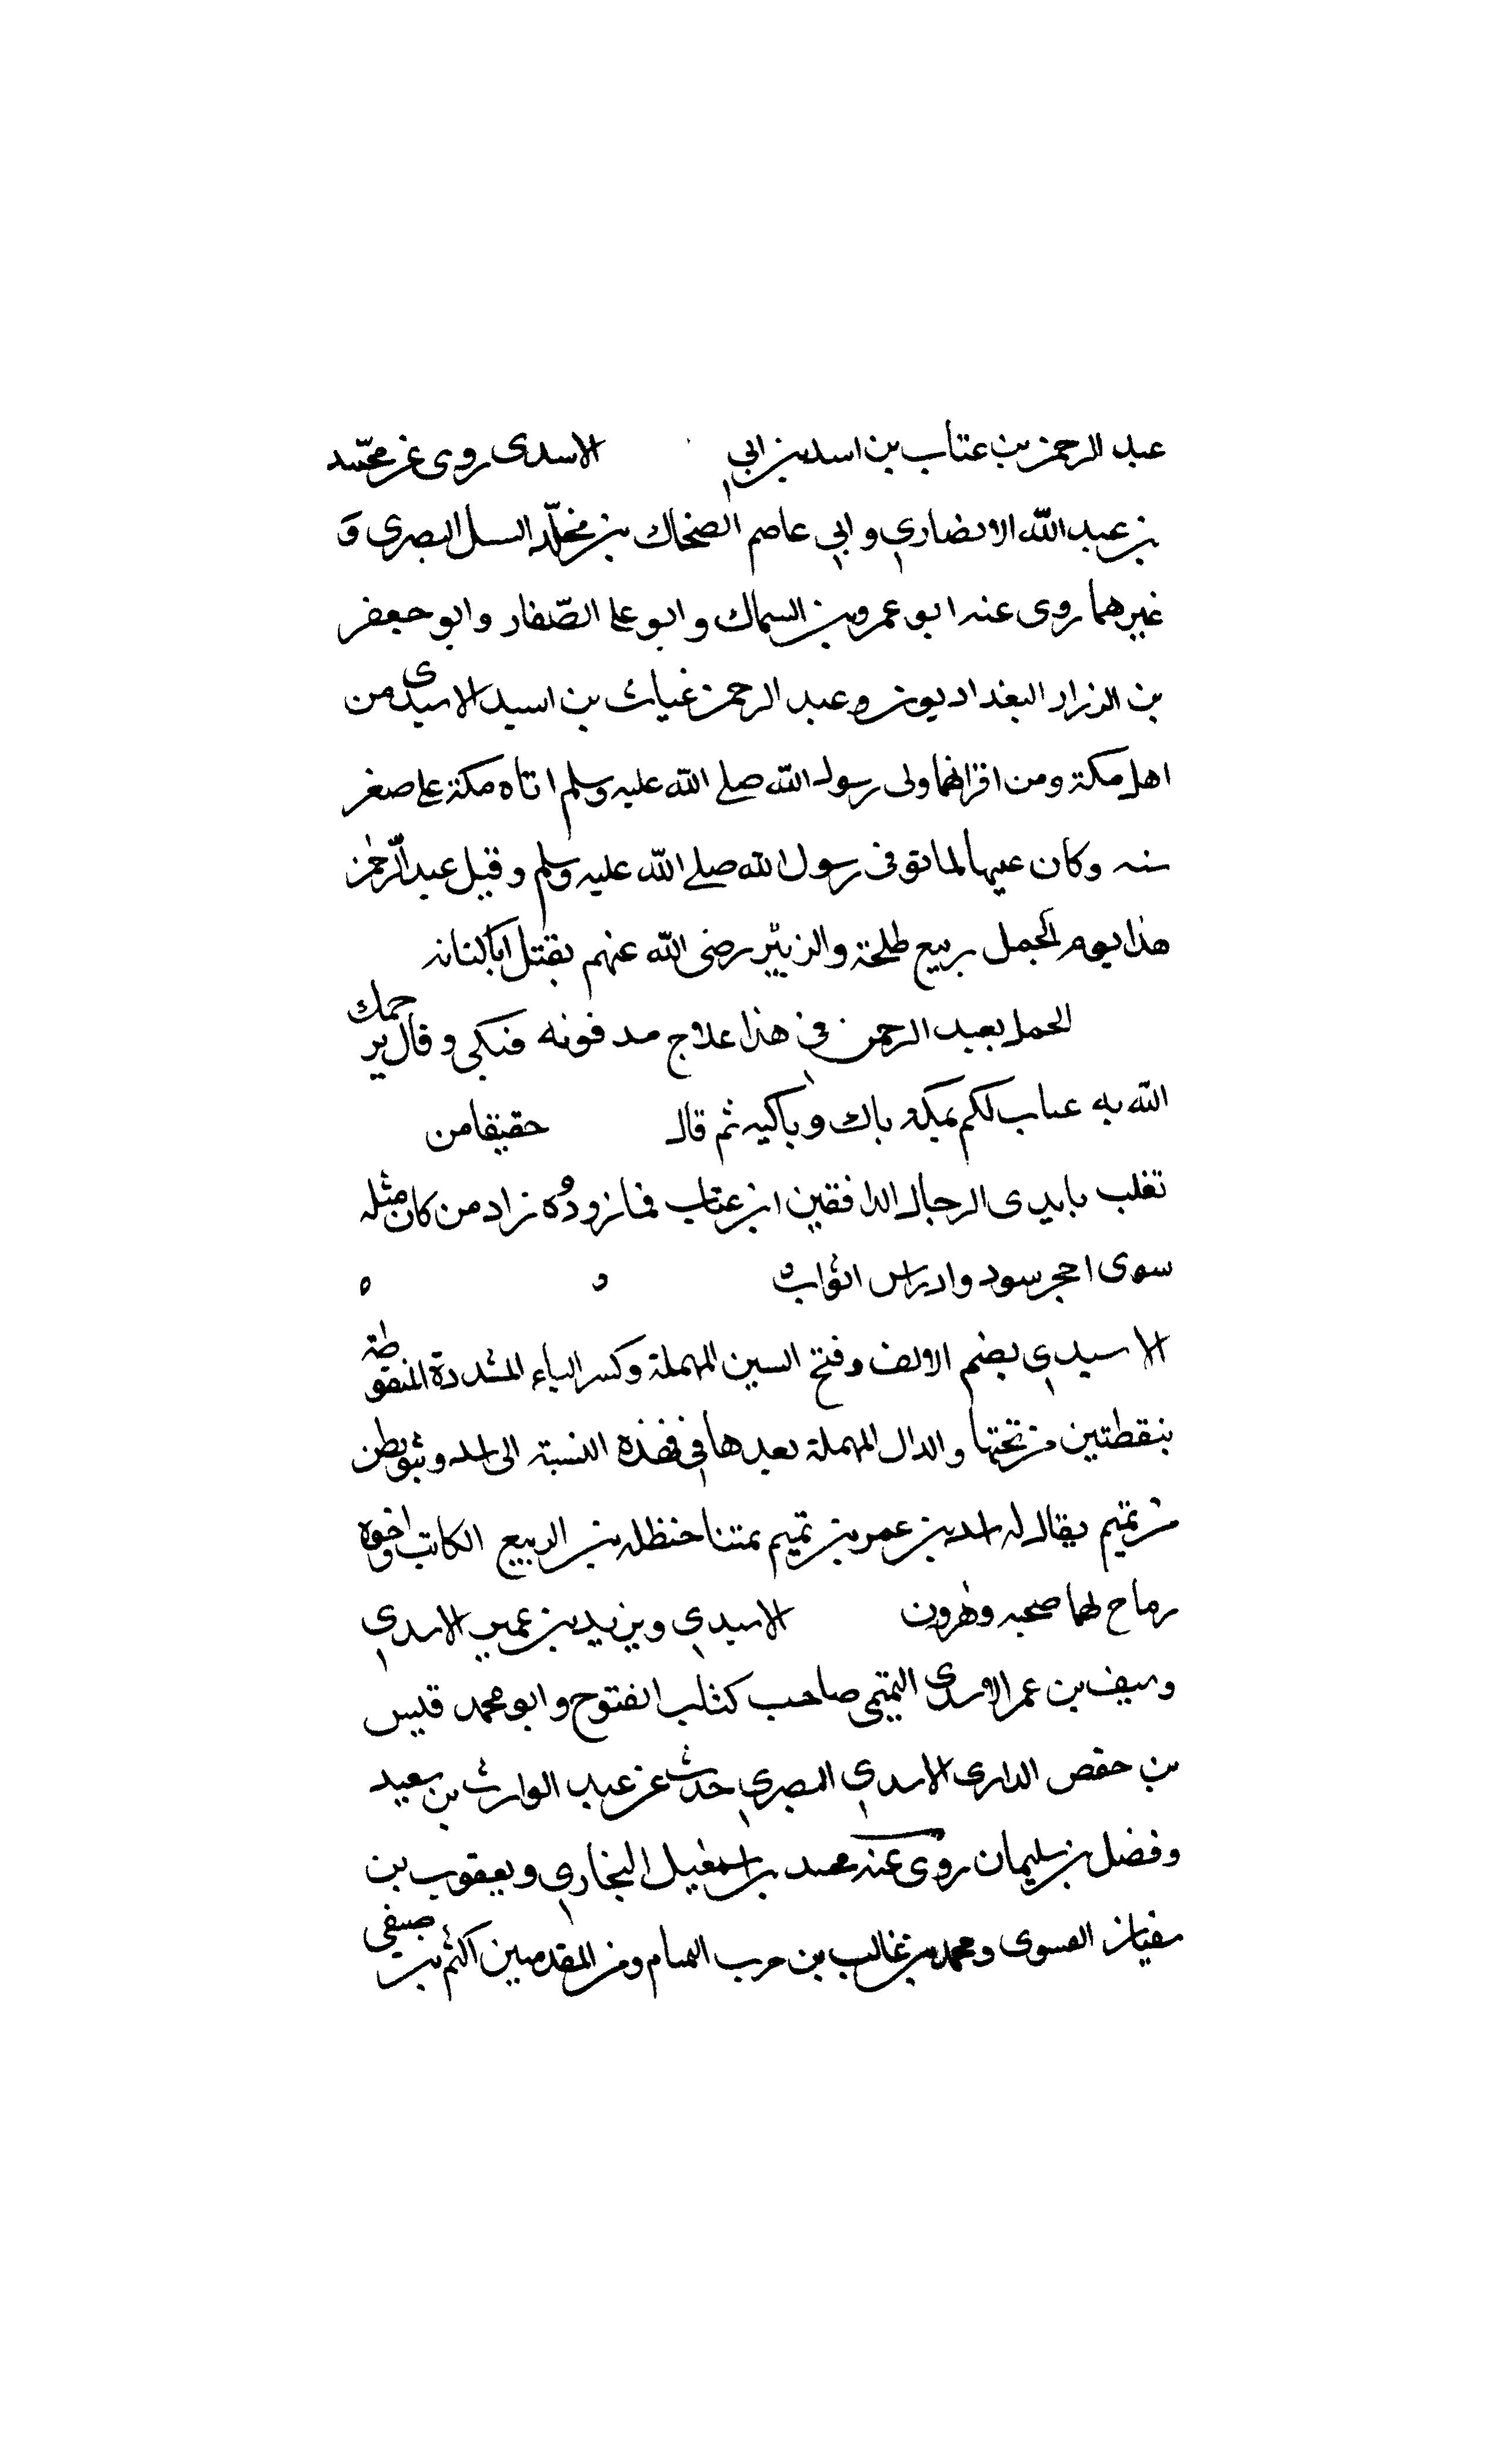 عبد الرحمن بن عتاب بن اسد بن ابي الاسدى روى عن محمد
بن عبد الله الانصاري و ابي عاصم الضحاك بن مخلد السل البصري و
غيرهما روى عنه ابو عمرو بن السماك و ابو على الصفار و ابو جعفر
بن الرزاز البغداديون و عبد الرحمن غياث بن اسيد الاسيدى من
اهل مكة ومن اقرانها ولى رسول الله صلى الله عليه وسلم اتاه مكة على صغر
سنه وكان عيها لما توفى رسول الله صلى الله عليه وسلم و قيل عبد الرحمن
هذا يوم الجمل بربيع طلحة والزبير رضى الله عنهم بقتل
الحمل بعبد الرحمن فى هذا علاج مدفونه فبكى و قال يرحمك
الله به عتاب لكم بمكة باك و باكيه ثم قال حقيقا من
تغلب بايدى الرجال الدافقين ابن عتاب فما زوده زاد من كان مثله
سوى احجر سود وادراس اثواب
الاسيدي بضم الالف وفتح السين المهملة وكسر الياء المشددة المنقوطة
بنقطتين من تحتها والدال المهملة بعدها فى هذه النسبة الى اسد وبنو بطن
من تميم يقال له اسد بن عمر بن تميم بمتنا حنظله بن الربيع الكاتب واخوه
رماح لهما صحبه وهرون الاسيدي ويزيد بن عمير الاسدي
وسيف بن عمر الاسدى التميمى صاحب كتاب الفتوح و ابو محمد قيس
بن حفص الدارى الاسدي البصري حدث عن عبد الوارث بن سعيد
وفضل بن سليمان روى عنه محمد بن اسمعيل البخاري ويعقوب بن
سفيان الفسوى ومحمد بن غالب بن حرب الهمام ومن المقدمين اكثم بن صيفى